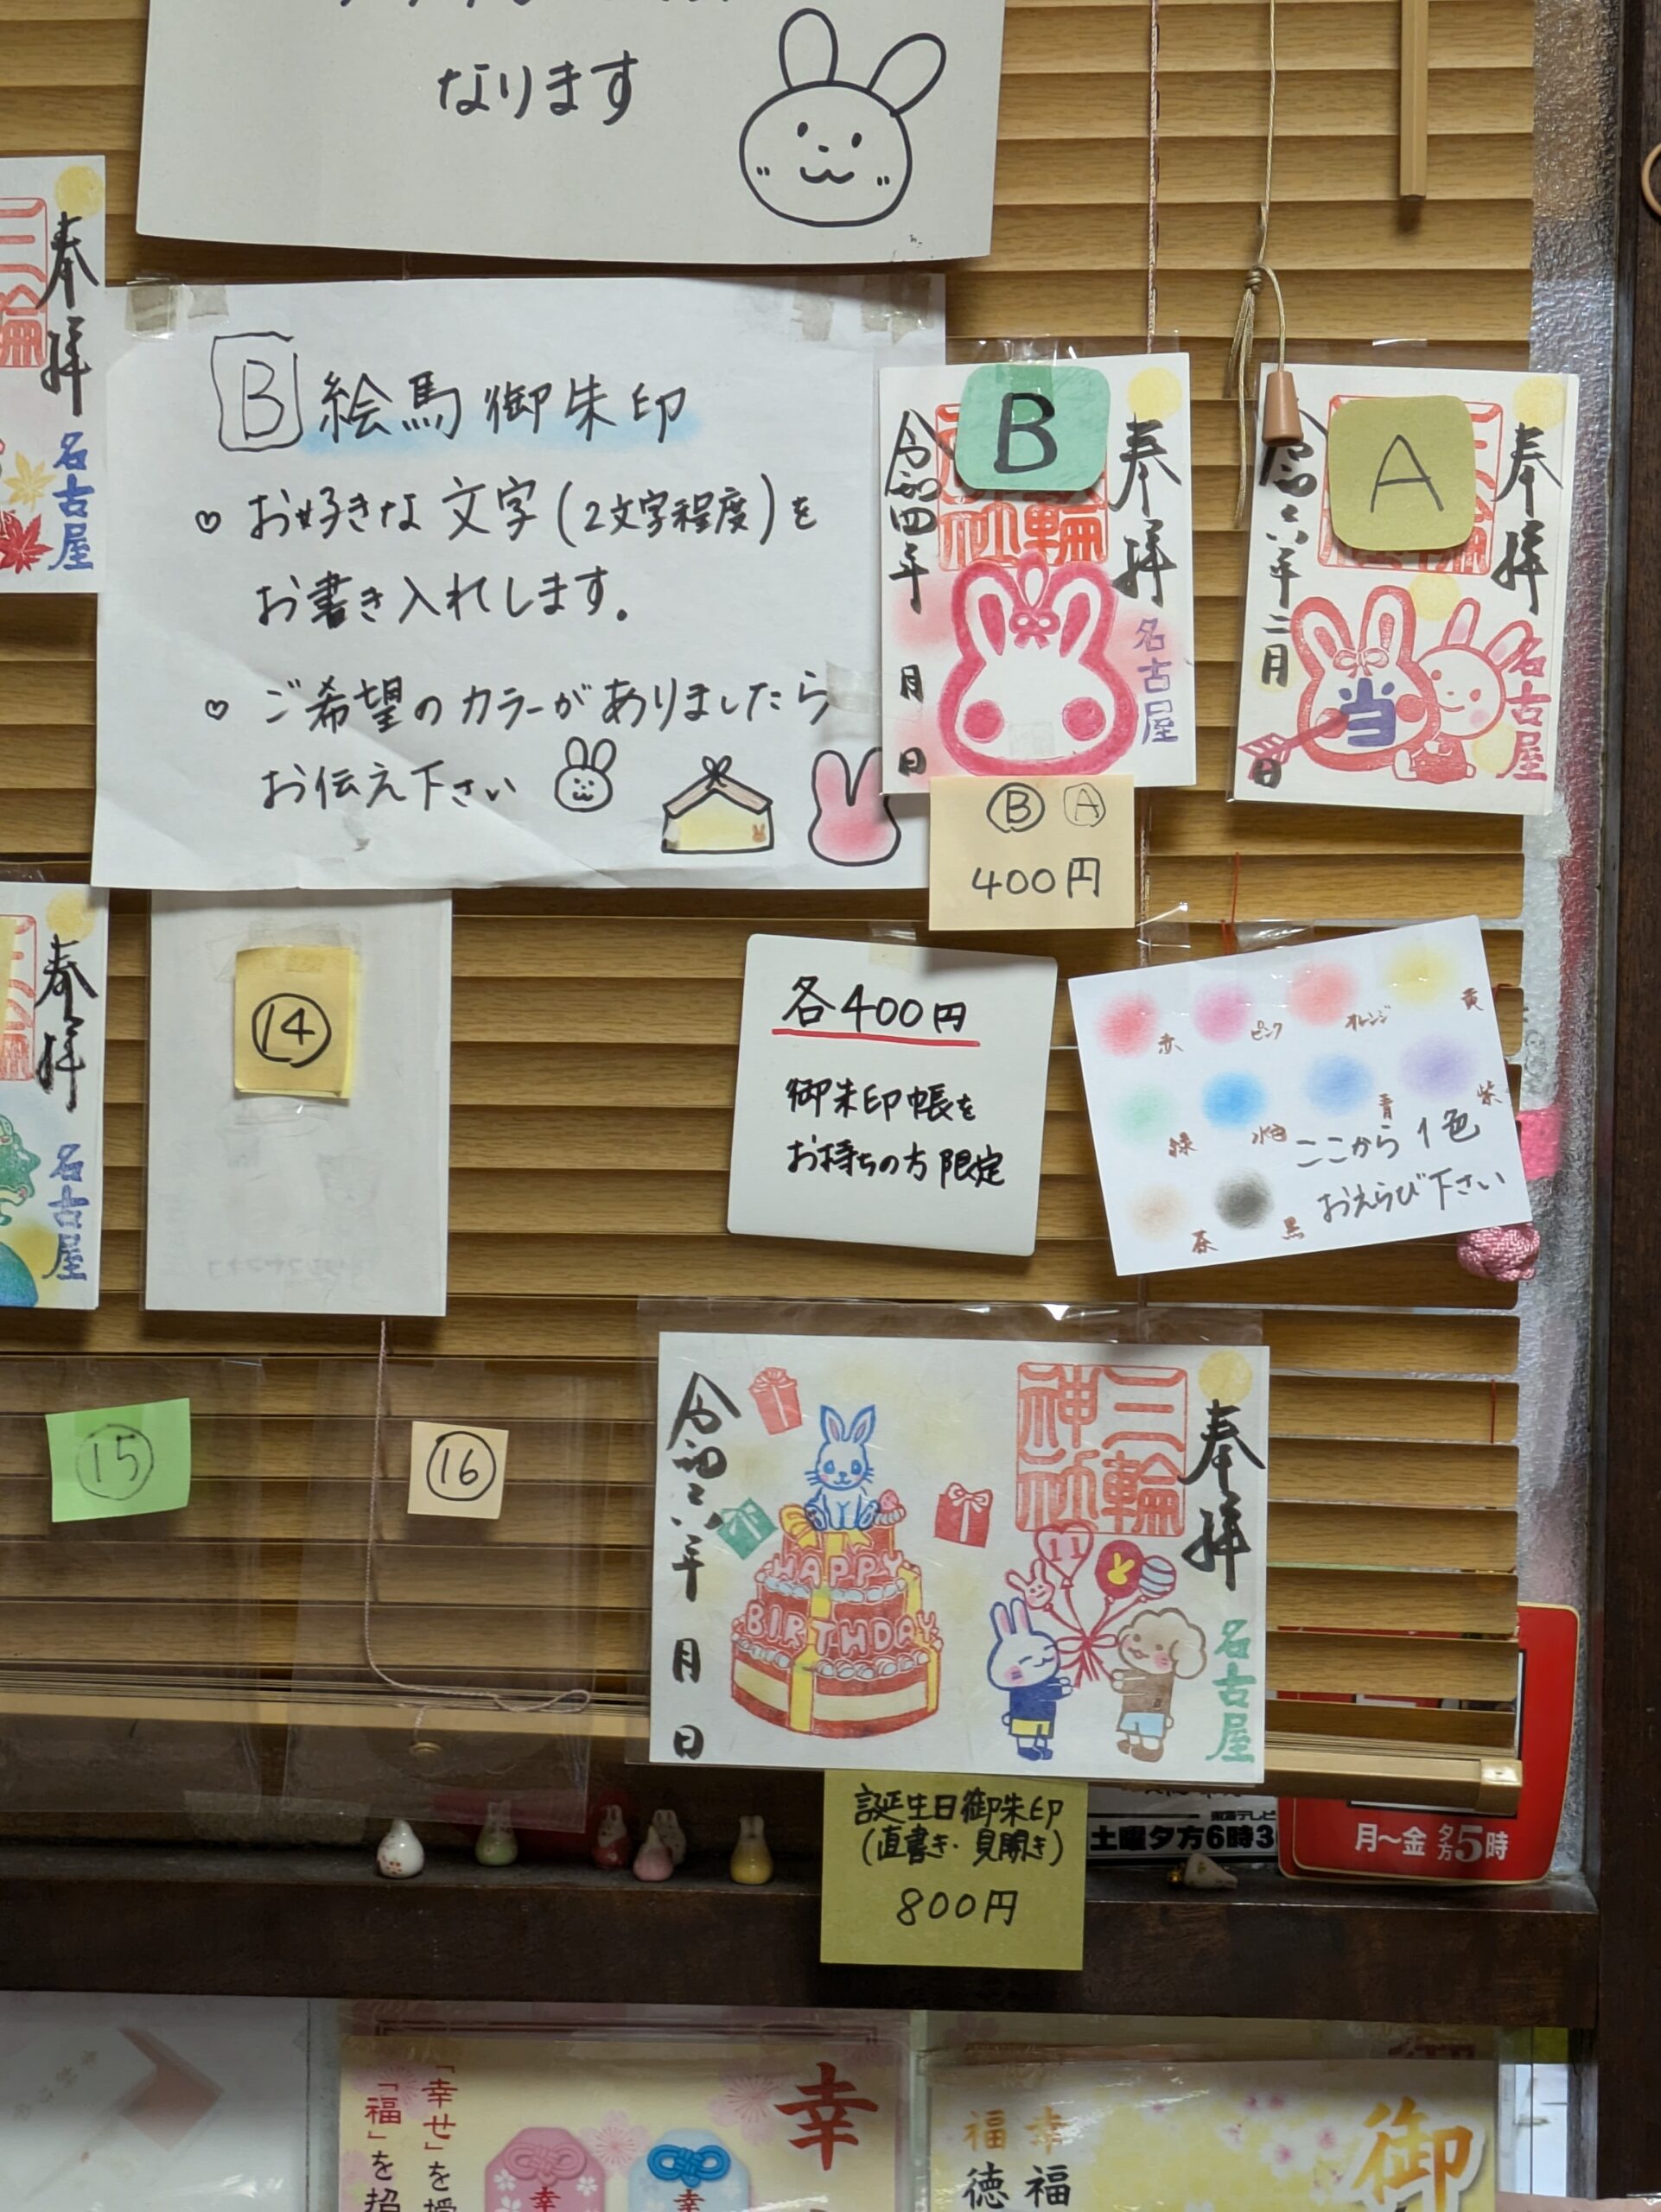 なります
奉拝
名古屋
B 絵馬御朱印
お好きな文字(2文字程度)を
お書き入れします。
ご希望のカラーがありましたら
お伝え下さい
B
奉拝
三輪神社
令和四年 月 日
名古屋
Ⓑ Ⓐ
400円
A
奉拝
令和六年二月 日
当
名古屋
奉拝
名古屋
⑭
各400円
御朱印帳を
お持ちの方限定
赤 ピンク オレンジ 黄
緑 水色 青 紫
茶 黒
ここから1色
おえらび下さい
⑮
⑯
奉拝
三輪神社
令和六年 月 日
HAPPY
BIRTHDAY
11
名古屋
誕生日御朱印
(直書き・見開き)
800円
土曜夕方6時3
月〜金 夕方5時
幸
「幸せ」を
「福」を招
幸
幸
御
幸福
福徳